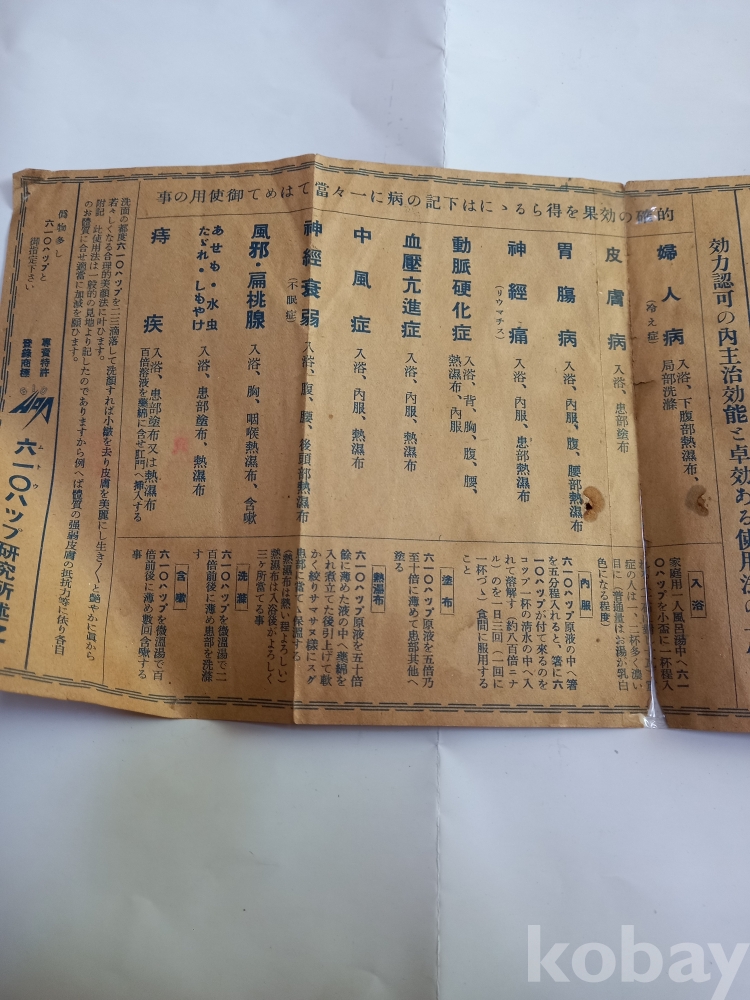 効力認可の内主治効能と卓効ある使用法の
的確の効果を得らるゝには下記の病に一々當てはめて御使用の事
婦人病
(冷え症)
入浴、下腹部熱濕布、
局部洗滌
皮膚病
入浴、患部塗布
胃腸病
入浴、內服、腹、腰部熱濕布
神經痛
(リウマチス)
入浴、內服、患部熱濕布
動脈硬化症
入浴、背、胸、腹、腰、
熱濕布、內服
血壓亢進症
入浴、內服、熱濕布
中風症
入浴、內服、熱濕布
神經衰弱
(不眠症)
入浴、腹、腰、後頭部熱濕布
風邪・扁桃腺
入浴、胸、咽喉熱濕布、含嗽
あせも・水虫
たゞれ・しもやけ
入浴、患部塗布、熱濕布
痔疾
入浴、患部塗布又は熱濕布
百倍溶液を藥綿に含せ肛門へ挿入する
入浴
家庭用一人風呂湯中へ六一
〇ハップを小盃に一杯程入
症の人は一、二杯多く濃い
目に(普通量はお湯が乳白
色になる程度)
內服
六一〇ハップ原液の中へ箸
を五分程入れると、箸に六
一〇ハップが付て來るのを
コップ一杯の清水の中へ入
れて溶解す(約八百倍ニナ
ル)のを一日三回(一回に
一杯づゝ)食間に服用する
こと
塗布
六一〇ハップ原液を五倍乃
至十倍に薄めて患部其他へ
塗る
熱濕布
六一〇ハップ原液を五十倍
餘に薄めた液の中へ藥綿を
入れ煮立てた後引上げて軟
かく絞りサマサヌ樣にスグ
患部に當てゝ保溫する
(熱濕布は熱い程よろしい)
熱濕布は入浴後がよろしく
三ヶ所當てる事
洗滌
六一〇ハップを微溫湯で二
百倍前後に薄め患部を洗滌
す
含嗽
六一〇ハップを微溫湯で百
倍前後に薄め數回含嗽する
事
洗面の都度六一〇ハップを二三滴落して洗顏すれば小皺を去り皮膚を美麗にし生き〱と艷やかに眞から
若々しくなる合理的美顏法に叶ひます。
附記 此使用法は一般的の見地より記したのでありますから例へば體質の强弱皮膚の抵抗力等に依り各自
のお體質に合せ適當に加減を願ひます。
僞物多し
六一〇ハップと
御指定下さい
專賣特許
登錄商標
六一〇ハップ硏究所述
kobay